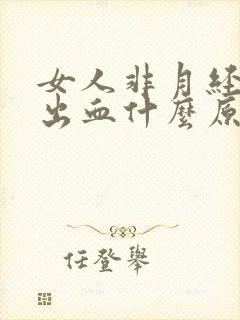 女人非月经
出血什麼原
任登舉